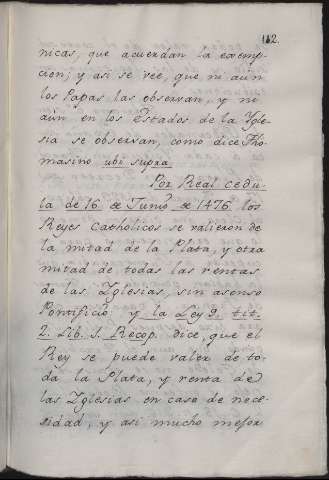 112.
nicas, que acuerdan la exemp-
cion; y asi se vee, que ni aun
los Papas las observan, y ni
aun en los Estados de la Ygle-
sia se observan, como dice Tho-
masino ubi supra
Por Real cedu-
la de 16 de Junio de 1476 los
Reyes Catholicos se valieron de
la mitad de la Plata, y otra
mitad de todas las rentas
de las Yglesias, sin asenso
Pontificio y la Ley 9. tit.
2. Lib. 1. Recop. dice, que el
Rey se puede valer de to-
da la Plata, y renta de
las Yglesias en caso de nece-
sidad, y asi mucho mejor